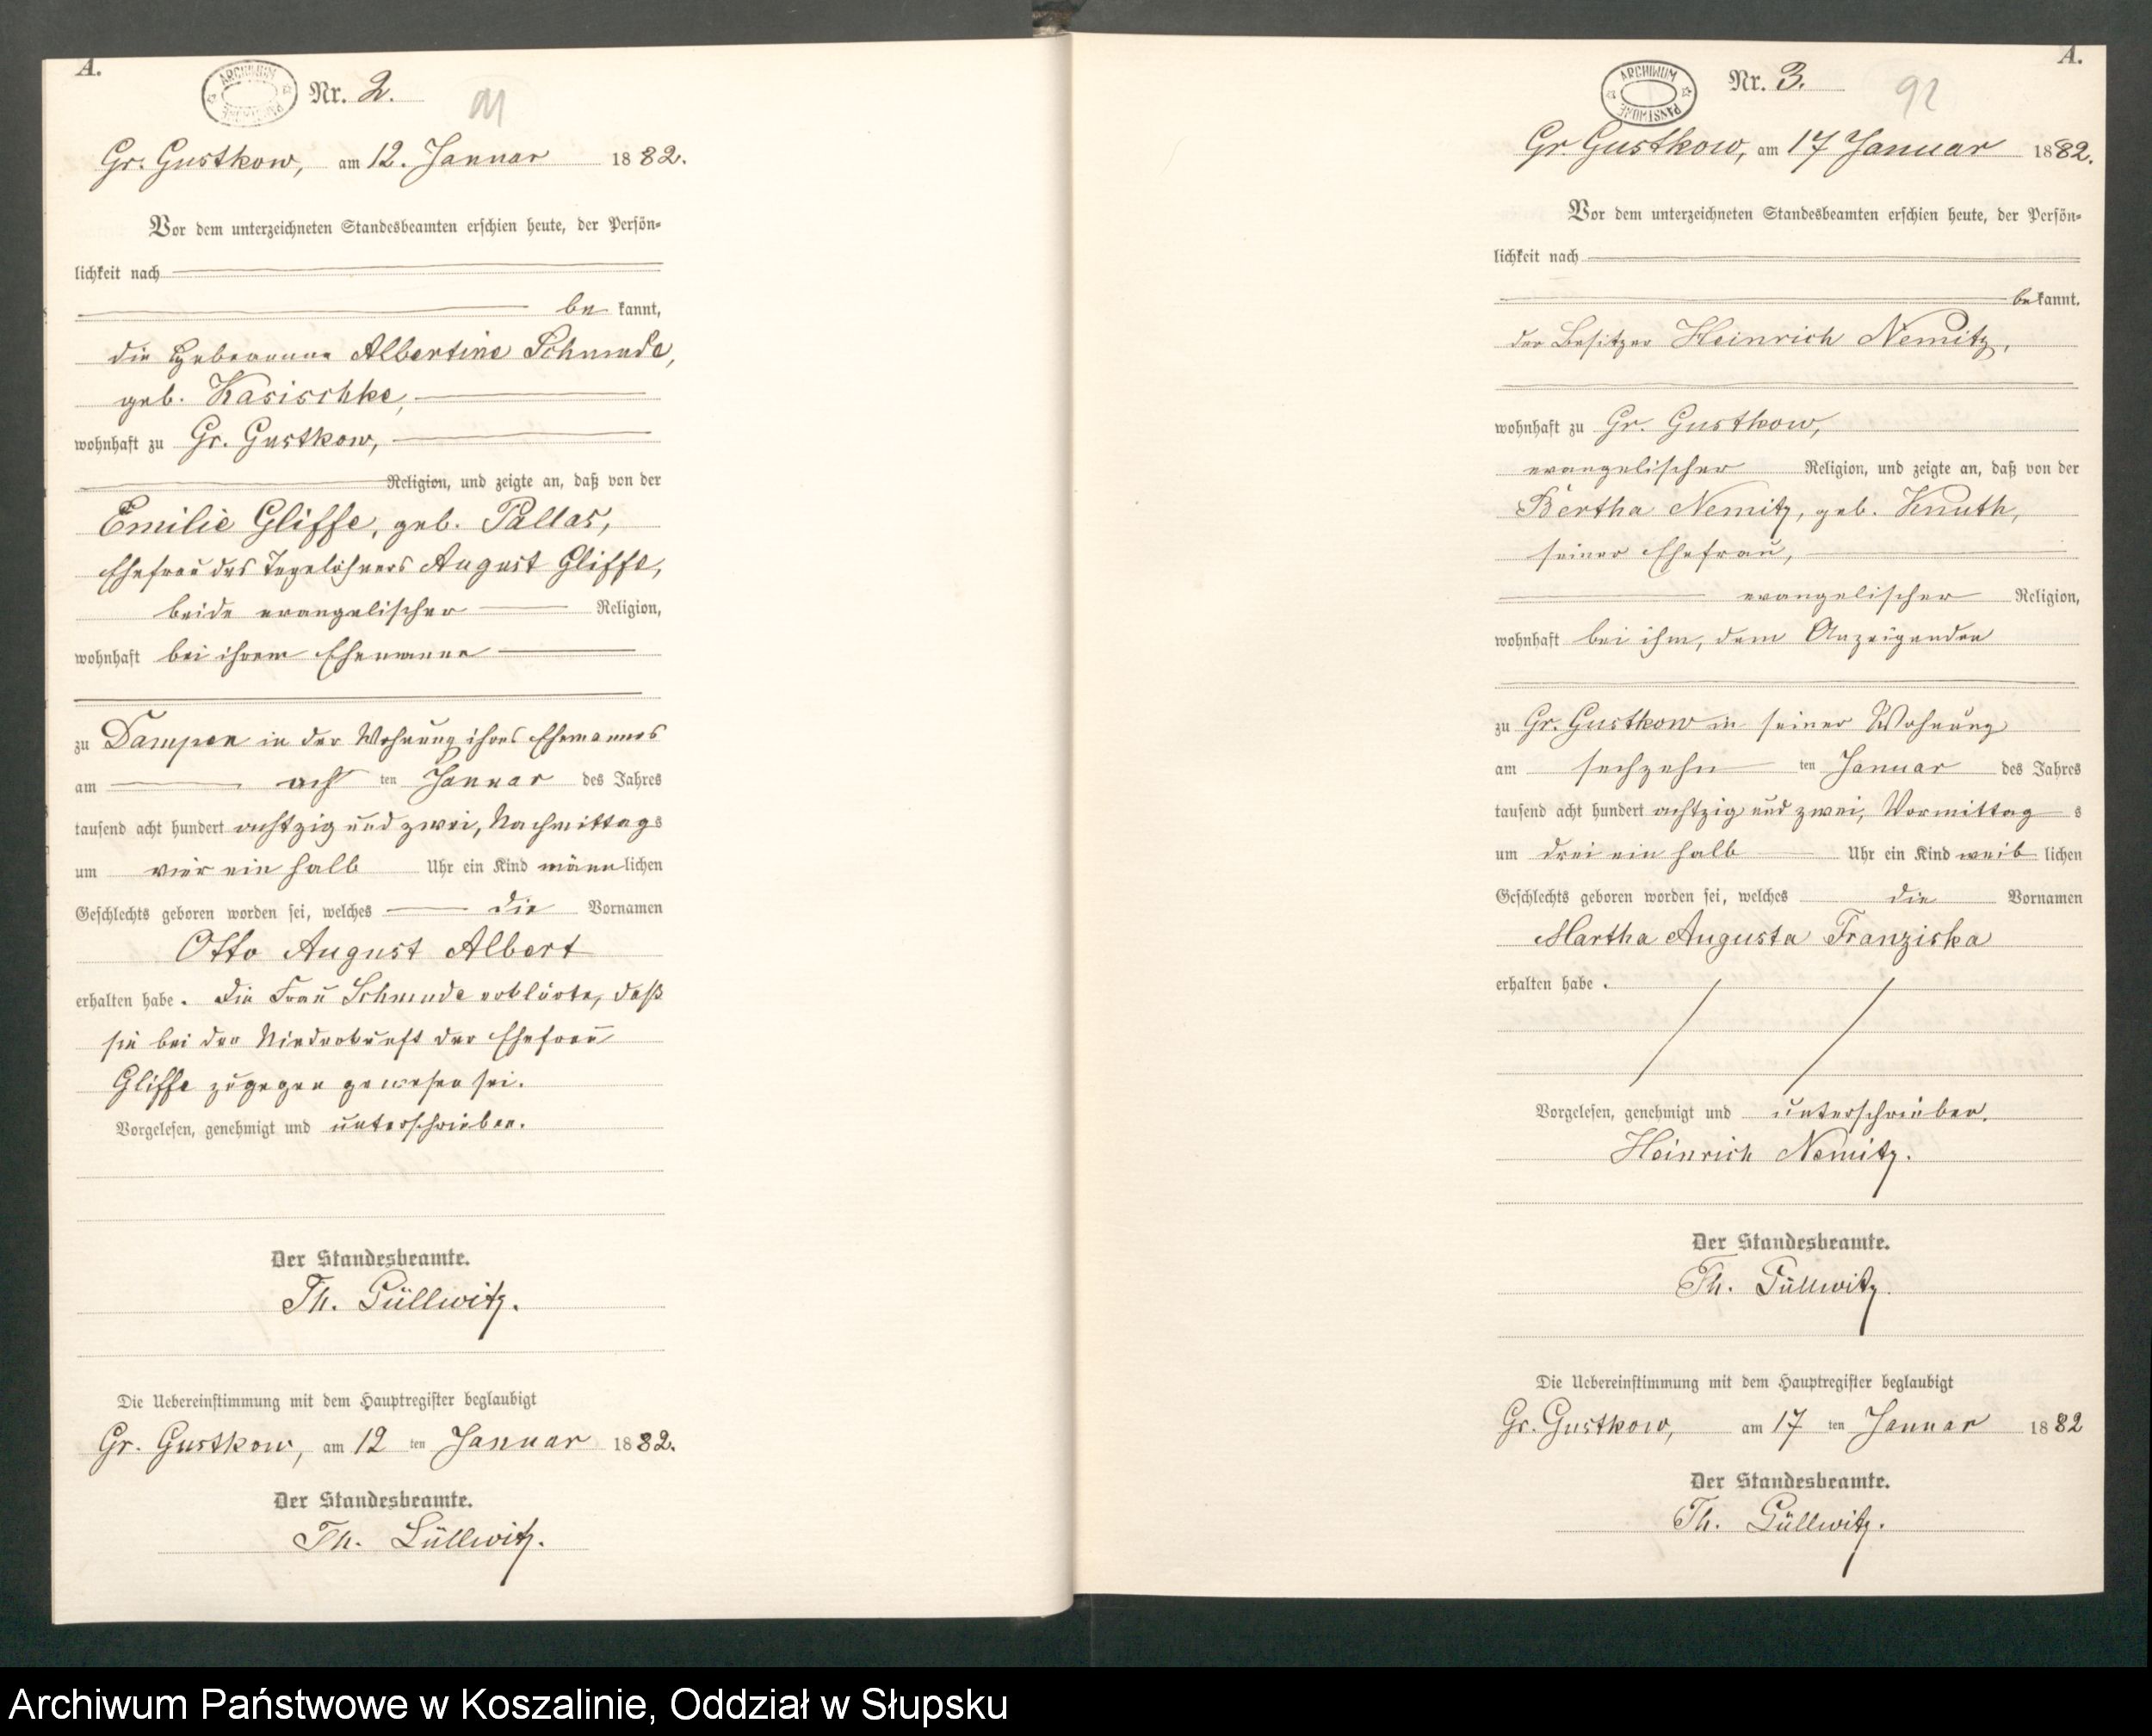 A.
ARCHIWUM PAŃSTWOWE
Nr. 2.
91
Gr. Gustkow, am 12. Januar 1882.
Vor dem unterzeichneten Standesbeamten erschien heute, der Persön-
lichkeit nach
be kannt,
die Hebeamme Albertine Schmude,
geb. Kasischke,
wohnhaft zu Gr. Gustkow,
Religion, und zeigte an, daß von der
Emilie Gliffe, geb. Pallas,
Ehefrau des Tagelöhners August Gliffe,
beide evangelischer Religion,
wohnhaft bei ihrem Ehemanne
zu Dampen in der Wohnung ihres Ehemannes
am acht ten Januar des Jahres
tausend acht hundert achtzig und zwei, Nachmittags
um vier ein halb Uhr ein Kind männlichen
Geschlechts geboren worden sei, welches die Vornamen
Otto August Albert
erhalten habe. Die Frau Schmude erklärte, daß
sie bei der Niederkunft der Ehefrau
Gliffe zugegen gewesen sei.
Vorgelesen, genehmigt und unterschrieben.
Der Standesbeamte.
Th. Püllwitz.
Die Uebereinstimmung mit dem Hauptregister beglaubigt
Gr. Gustkow, am 12 ten Januar 1882.
Der Standesbeamte.
Th. Püllwitz.
A.
ARCHIWUM PAŃSTWOWE
Nr. 3.
92
Gr. Gustkow, am 17 Januar 1882.
Vor dem unterzeichneten Standesbeamten erschien heute, der Persön-
lichkeit nach
bekannt.
der Besitzer Heinrich Nemitz,
wohnhaft zu Gr. Gustkow,
evangelischer Religion, und zeigte an, daß von der
Bertha Nemitz, geb. Knuth,
seiner Ehefrau,
evangelischer Religion,
wohnhaft bei ihm, dem Anzeigenden
zu Gr. Gustkow in seiner Wohnung
am sechzehn ten Januar des Jahres
tausend acht hundert achtzig und zwei, Vormittag s
um drei ein halb Uhr ein Kind weib lichen
Geschlechts geboren worden sei, welches die Vornamen
Martha Augusta Franziska
erhalten habe.
Vorgelesen, genehmigt und unterschrieben.
Heinrich Nemitz.
Der Standesbeamte.
Th. Püllwitz.
Die Uebereinstimmung mit dem Hauptregister beglaubigt
Gr. Gustkow, am 17 ten Januar 1882
Der Standesbeamte.
Th. Püllwitz.
Archiwum Państwowe w Koszalinie, Oddział w Słupsku